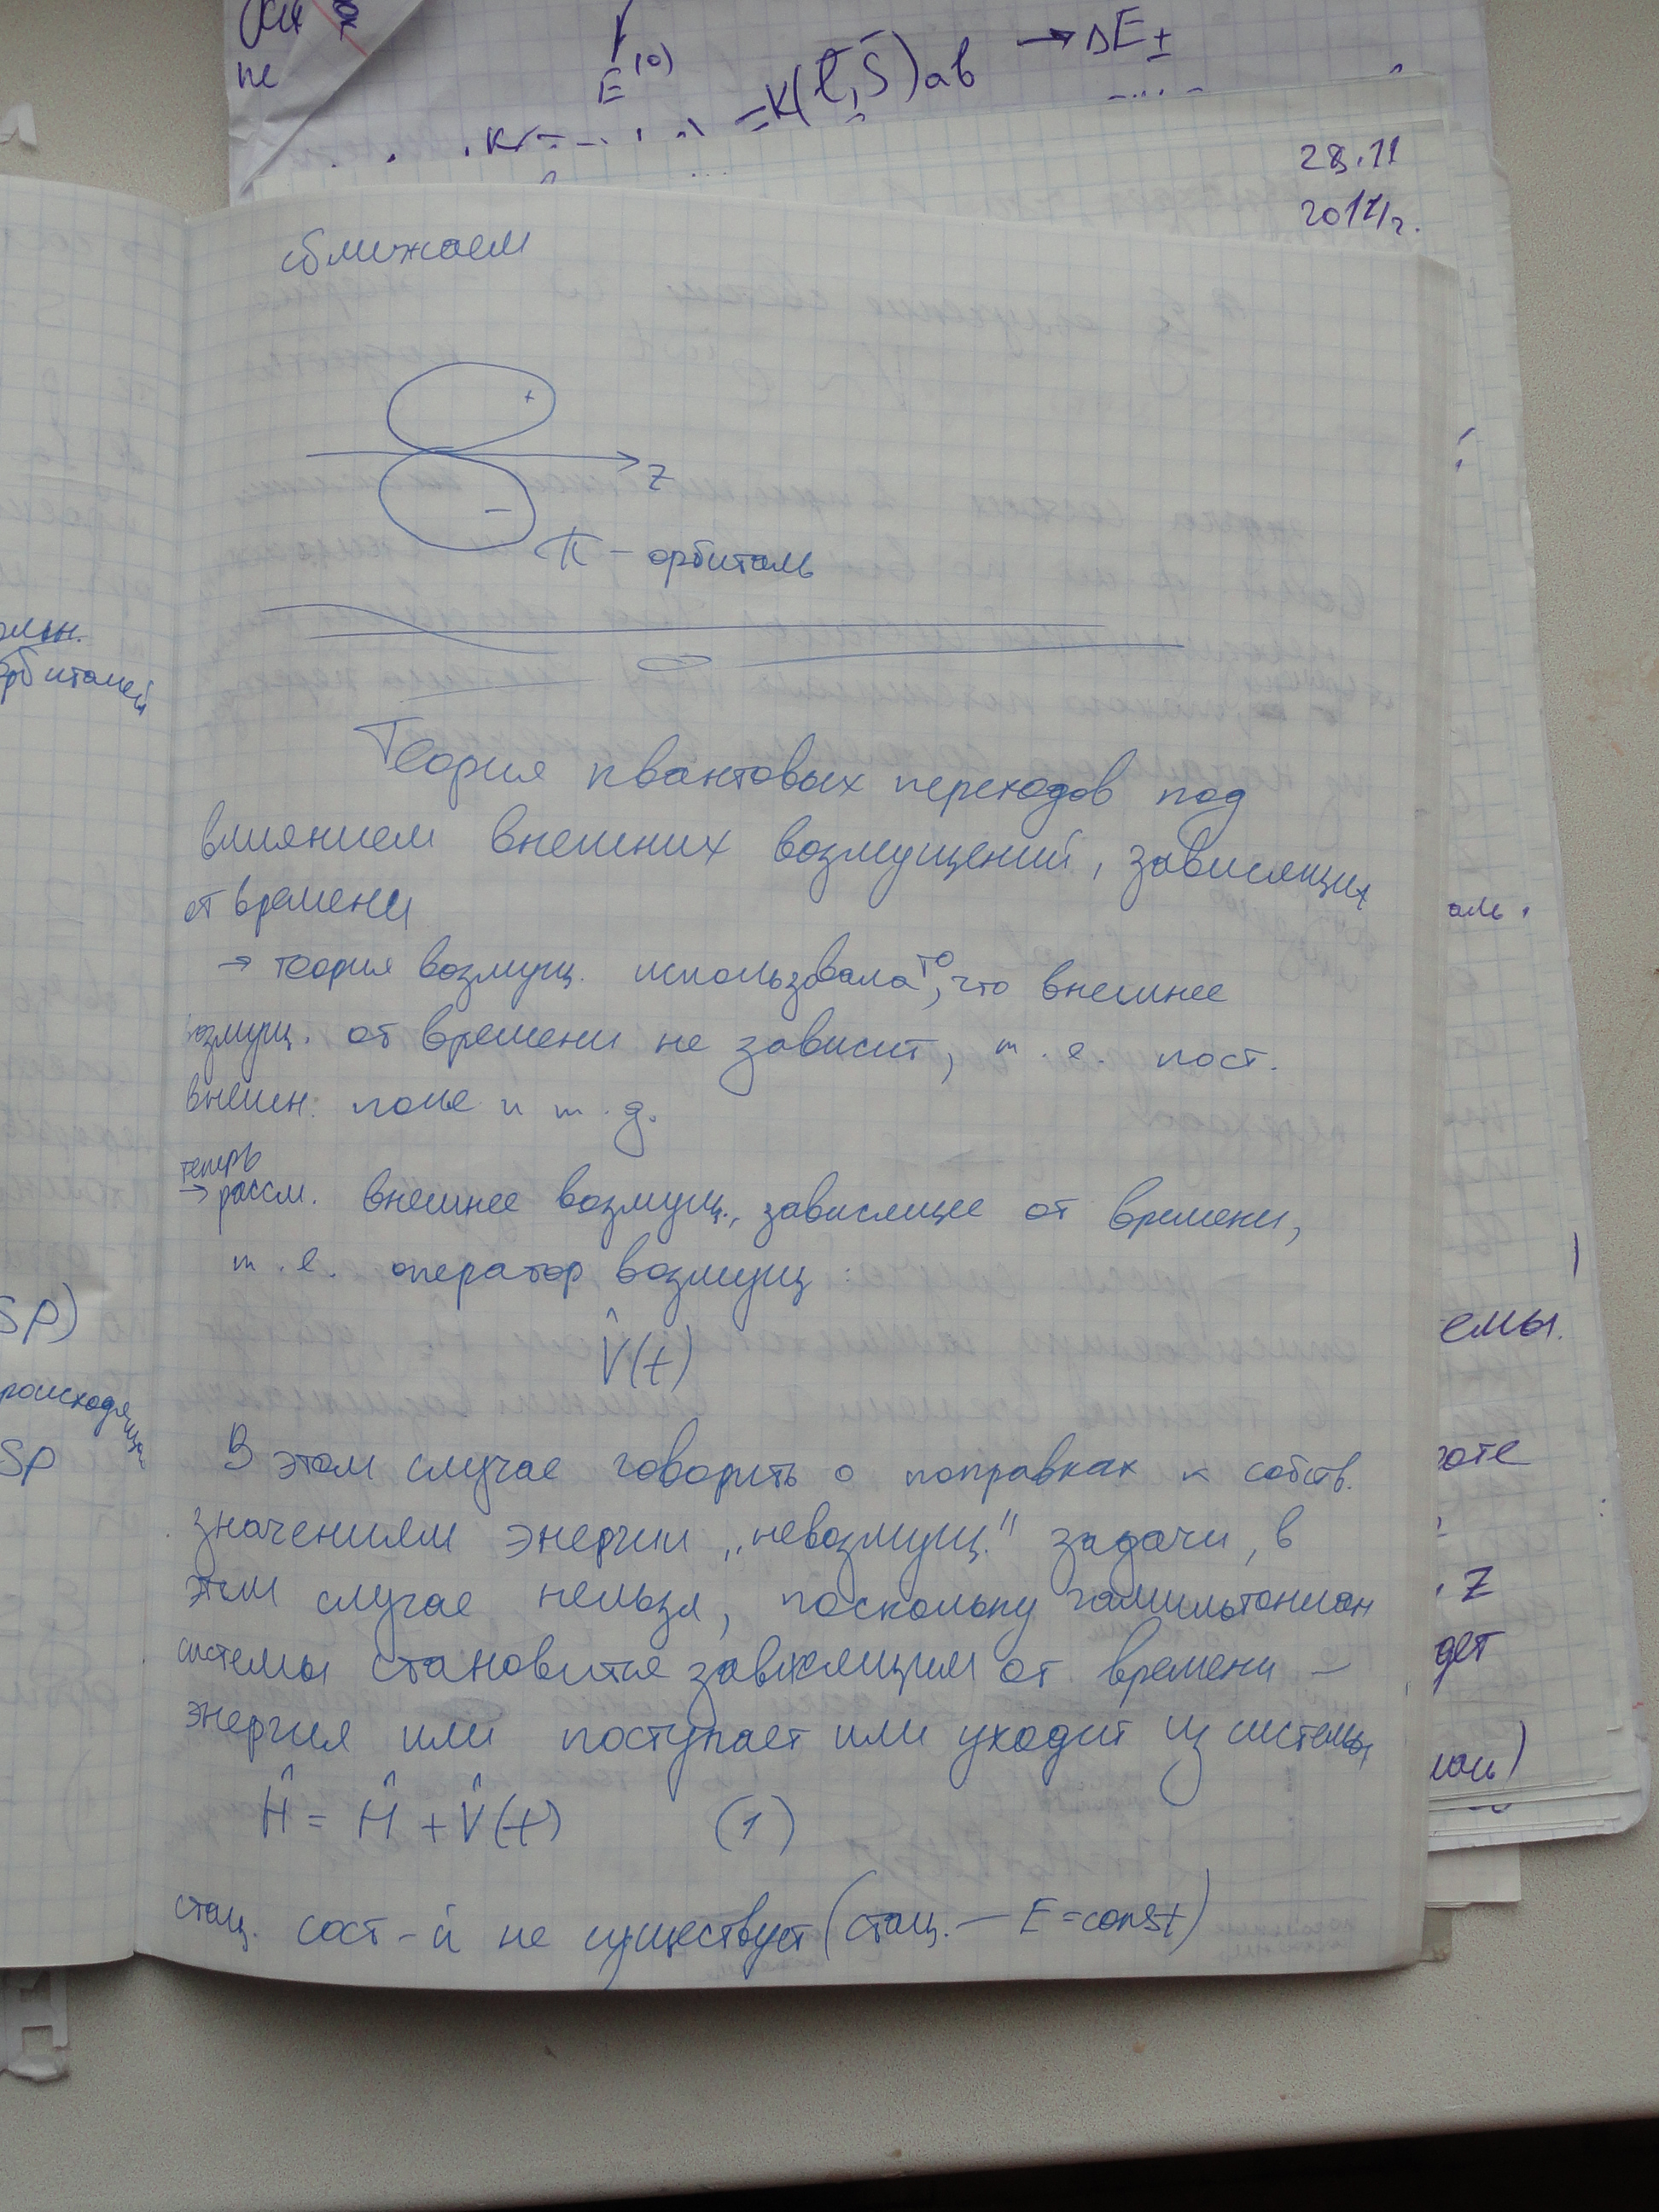 E⁽⁰⁾
=K(l,S)ab → ΔE±
28.11
сближаем
+
Z
−
π – орбиталь
Теория квантовых переходов под
влиянием внешних возмущений, зависящих
от времени
→ теория возмущ. использовала то, что внешнее
возмущ. от времени не зависит, т.е. пост.
внешн. поле и т.д.
теперь
→ рассм. внешнее возмущ., зависящее от времени,
т.е. оператор возмущ:
V̂(t)
В этом случае говорить о поправках к собств.
значениям энергии „невозмущ." задачи, в
этом случае нельзя, поскольку гамильтониан
системы становится зависящим от времени –
энергия или поступает или уходит из системы
Ĥ = Ĥ + V̂(t) (1)
стац. сост-й не существует (стац. – E = const)
орбиталей
SP)
SP
емы.
Z